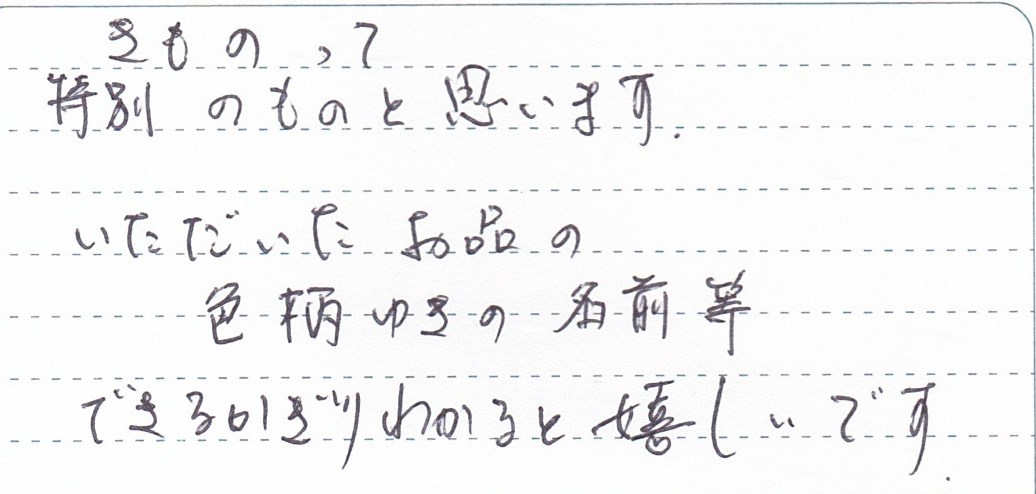 きものって
特別のものと思います.
いただいたお品の
色柄ゆきの名前等
できるかぎりわかると嬉しいです.